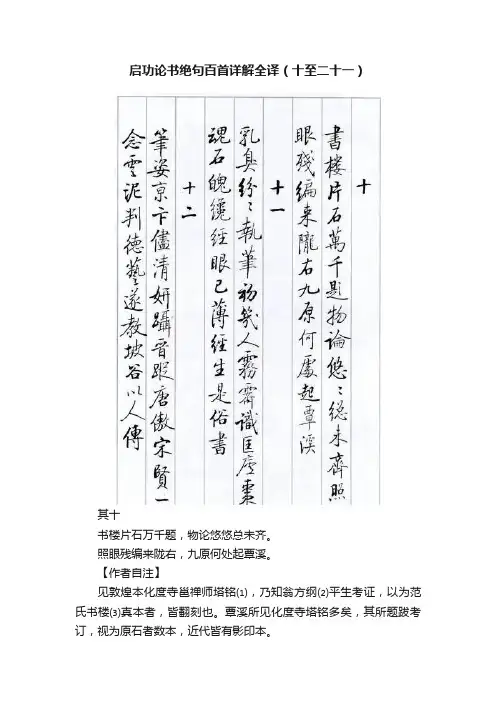 启功论书绝句百首详解全译（十至二十一）
十
書樓片石萬千題物論悠々總未齊照
眼殘編来隴右九原何處起覃溪
十一
乳臭紛々執筆初幾人霧霽識匡廬棗
魂石魄纔經眼已薄經生是俗書
十二
筆姿京卞儘清妍躡晉蹤唐傲宋賢一
念雲泥判德藝遂教坡谷以人傳
其十
书楼片石万千题，物论悠悠总未齐。
照眼残编来陇右，九原何处起覃溪。
【作者自注】
见敦煌本化度寺邕禅师塔铭⑴，乃知翁方纲⑵平生考证，以为范
氏书楼⑶真本者，皆翻刻也。覃溪所见化度寺塔铭多矣，其所题跋考
订，视为原石者数本，近代皆有影印本。